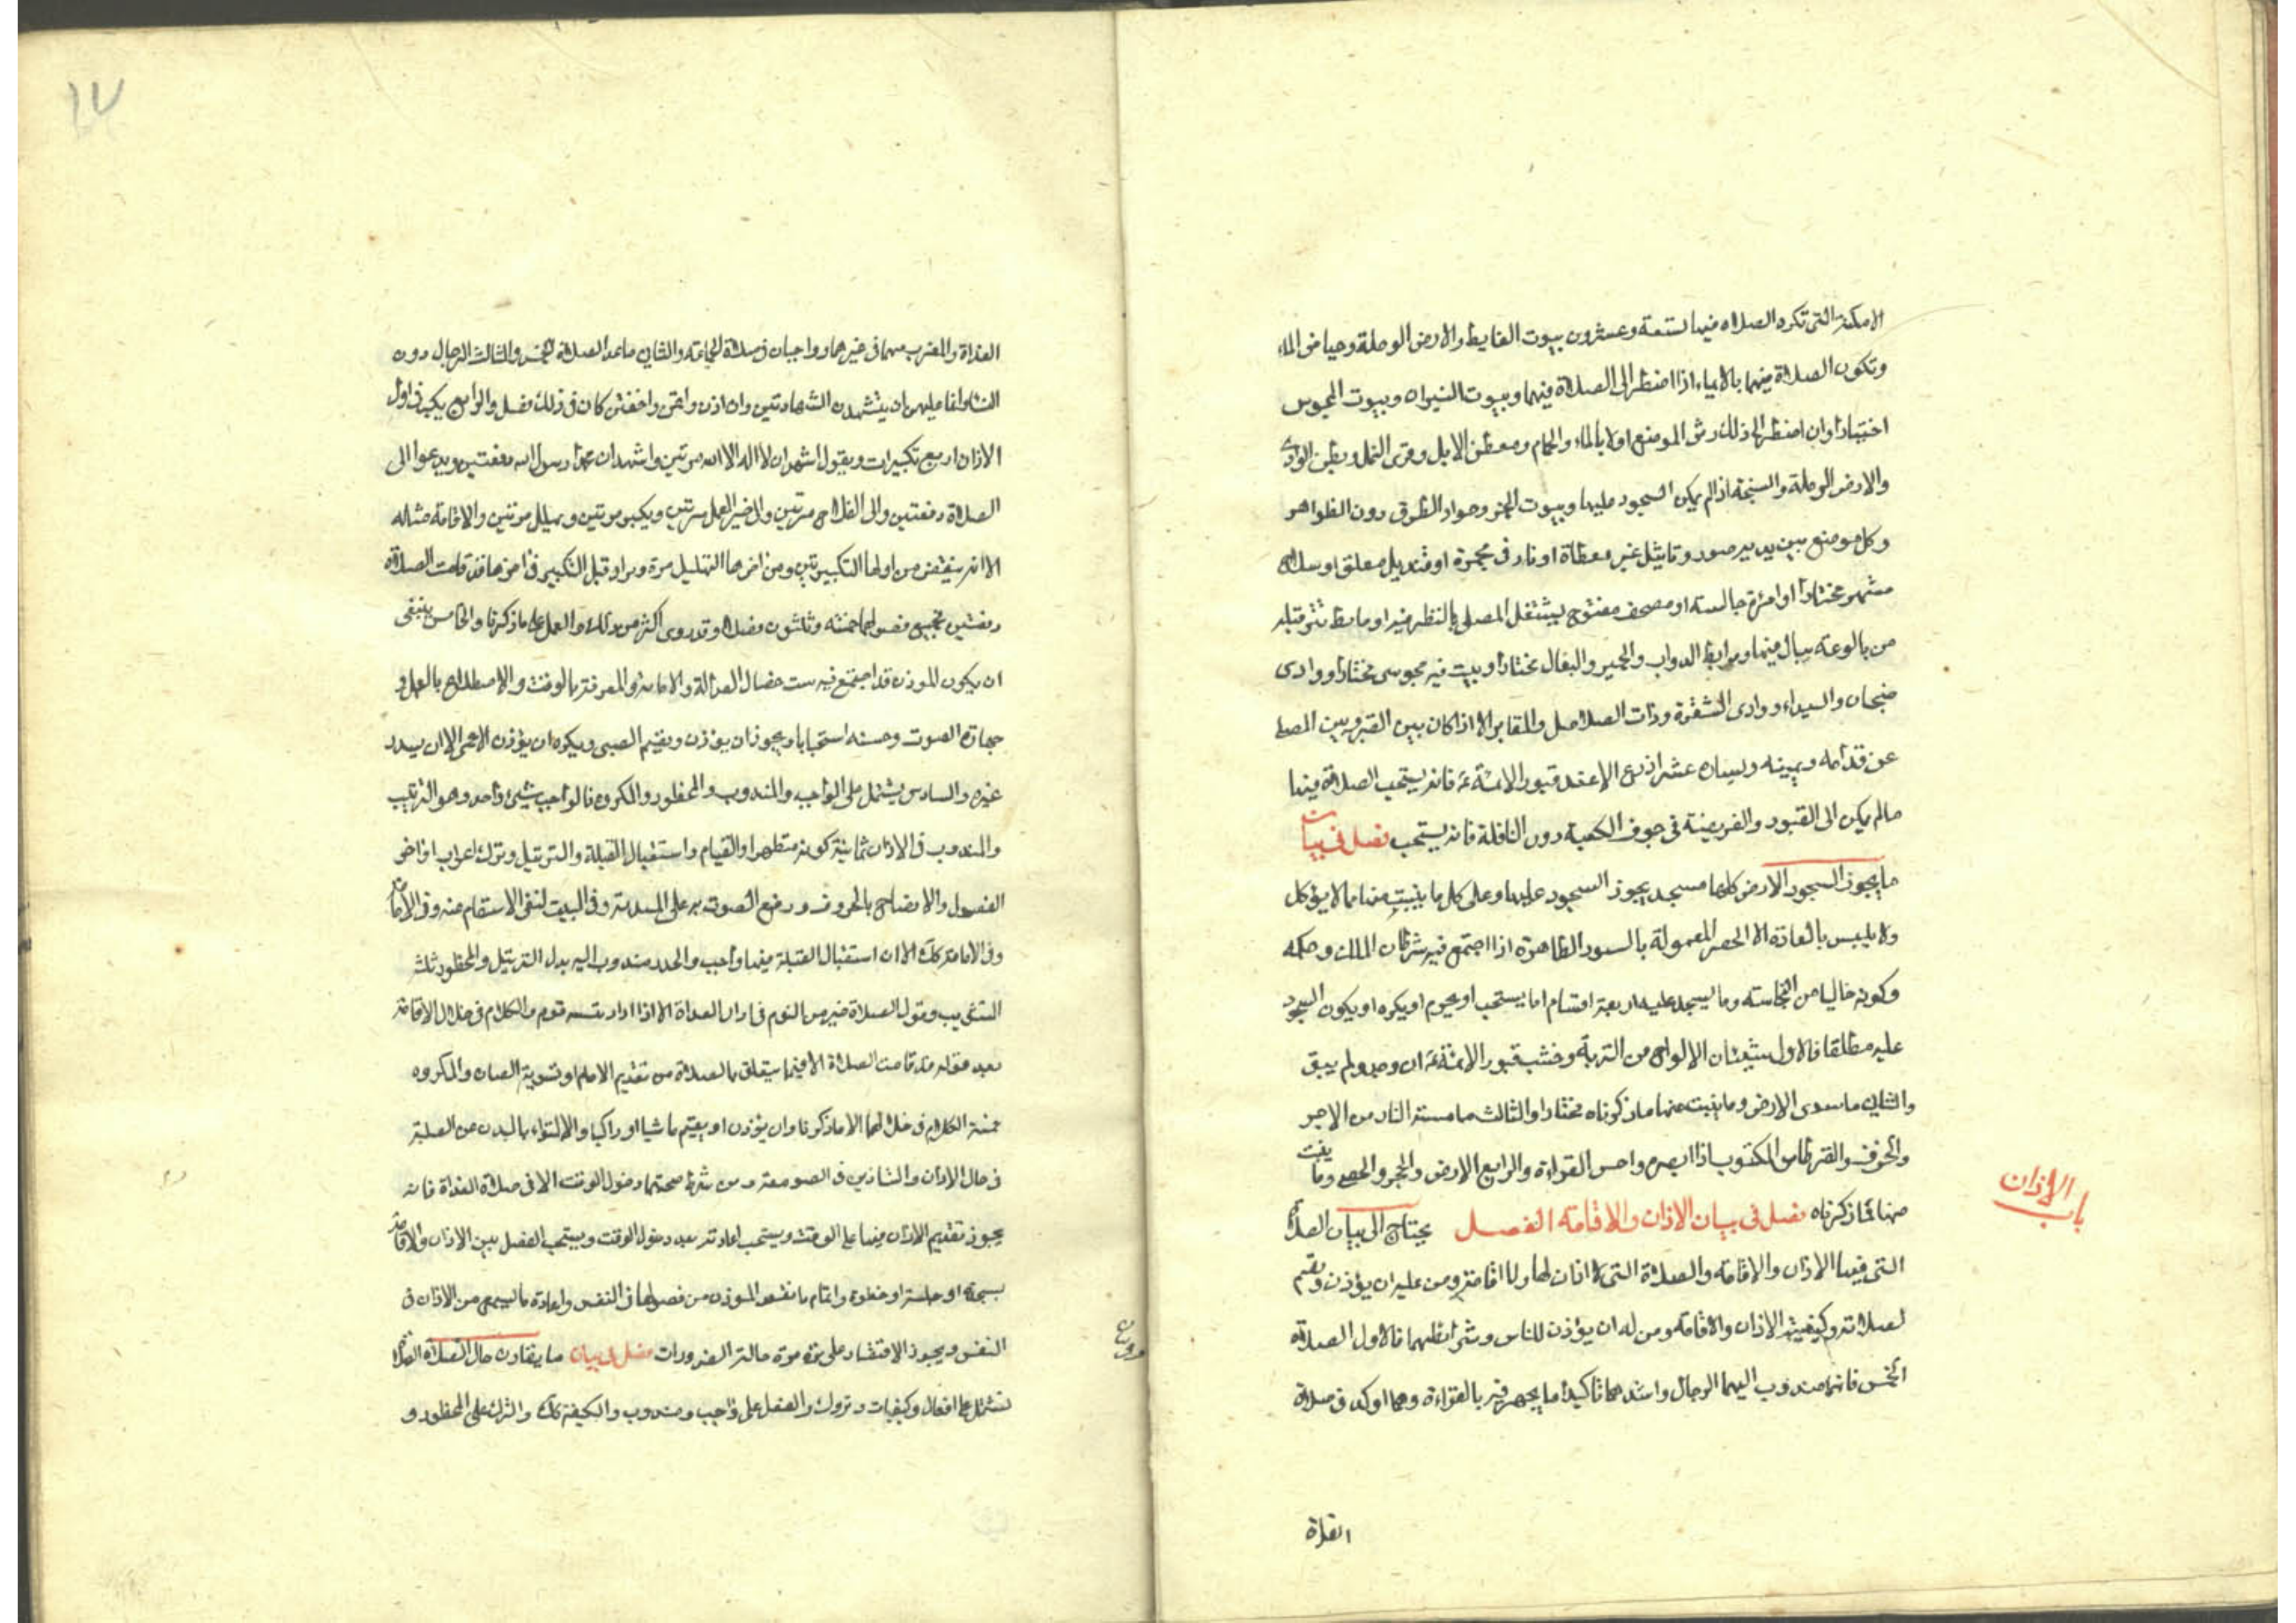 الامكنة التى تكره الصلاة فيها تسعة وعشرون بيوت الغايط والارض الوحلة وحياض الماء
وتكون الصلاة فيهما بالايماء اذا اضطر الى الصلاة فيهما وبيوت النيران وبيوت المجوس
اختيارا وان اضطر الى ذلك رش الموضع اولا بالماء والحمام ومعطن الابل وقرى النمل وبطن الوادى
والارض الوحلة والسبخة اذا لم يمكن السجود عليها وبيوت الخمر وجواد الطرق دون الظواهر
وكل موضع بين يديه صور وتماثيل غير مغطاة او نار فى مجمرة او قنديل معلق او سلاح
مشهر مختارا او امرئة جالسة او مصحف مفتوح يشتغل المصلى بالنظر فيه او حايط تنز قبلته
من بالوعة يبال فيها ومرابط الدواب والحمير والبغال مختارا وبيت فيه مجوسى مختارا ووادى
ضجنان والبيداء ووادى الشقرة وذات الصلاصل والمقابر الا اذا كان بين القبر وبين المصلى
عن قدامه ويمينه ويساره عشر اذرع الا عند قبور الائمة ع فانه يستحب الصلاة فيها
ما لم يكن الى القبور والفريضة فى جوف الكعبة دون النافلة فانه يستحب فصل فى بيان
ما يجوز السجود الارض كلها مسجد يجوز السجود عليها وعلى كل ما ينبت منها مما لا يؤكل
ولا يلبس بالعادة الا الحصر المعمولة بالسيور الظاهرة اذا اجتمع فيه شرطان الملك وحكمه
وكونه خاليا من النجاسة وما يسجد عليه اربعة اقسام اما يستحب او يحرم او يكره او يكون السجود
عليه مطلقا فالاول شيئان الالواح من التربة وخشب قبور الائمة ع ان وجد ولم يبق
والثانى ما سوى الارض وما ينبت منها ما ذكرناه مختارا والثالث ما مسته النار من الاجر
والخزف والقرطاس المكتوب اذا ابصره واحسن القراءة والرابع الارض والحجر والحصى وما ينبت
منها مما ذكرناه فصل فى بيان الاذان والاقامة الفصل يحتاج الى بيان الصلاة
التى فيها الاذان والاقامة والصلاة التى لا اذان لها ولا اقامة ومن عليه ان يؤذن ويقيم
لصلاته وكيفية الاذان والاقامة ومن له ان يؤذن للناس وشرائطهما فالاول الصلاة
الخمس فانهما مندوب اليهما الرجال واشدهما تاكيدا ما يجهر فيه بالقراءة وهما اوكد فى صلاة
الغداة
باب الاذان
١٧
الغداة والمغرب منهما فى غيرهما وواجبان فى صلاة الجماعة والثانى ما عدا الصلاة الخمس والثالث الرجال دون
النساء وانما عليهن ان يتشهدن الشهادتين وان اذن واقمن واخفتن كان فى ذلك فضل والرابع يكبر فى اول
الاذان اربع تكبيرات ويقول اشهد ان لا اله الا الله مرتين واشهد ان محمدا رسول الله دفعتين ويدعوا الى
الصلاة دفعتين والى الفلاح مرتين والى خير العمل مرتين ويكبر مرتين ويهلل مرتين والاقامة مثله
الا انه ينقص من اولها التكبيرتين ومن اخرها التهليل مرة ويزاد قبل التكبير فى اخرها قد قامت الصلاة
دفعتين فجميع فصولهما خمسة وثلثون فصلا وقد روى اكثر من ذلك والعمل على ما ذكرنا والخامس ينبغى
ان يكون المؤذن قد اجتمع فيه ست خصال العدالة والامانة والمعرفة بالوقت والاصطلاح بالعمل و
جهارة الصوت وحسنه استحبابا ويجوز ان يؤذن ويقيم الصبى ويكره ان يؤذن الاعمى الا ان يسدد
غيره والسادس يشتمل على الواجب والمندوب والمحظور والمكروه فالواجب شيئ واحد وهو الترتيب
والمندوب فى الاذان ثمانية كونه متطهرا والقيام واستقبال القبلة والترتيل وترك اعراب اواخر
الفصول والافصاح بالحروف ورفع الصوت به على المئذنة وفى البيت لنفى الاسقام عنه وفى الاقامة
وفى الاقامة كذلك الا ان استقبال القبلة فيها واجب والحدر مندوب اليه بدل الترتيل والمحظور ثلث
التثويب وقول الصلاة خير من النوم فى اذان الغداة الا اذا اراد تنبيه قوم والكلام فى خلال الاقامة
بعد قوله قد قامت الصلاة الا فيما يتعلق بالصلاة من تقديم الامام او تسوية الصفان والمكروه
خمسة الكلام فى خلالهما الا ما ذكرنا وان يؤذن او يقيم ماشيا او راكبا والالتواء بالبدن عن القبلة
فى حال الاذان والتاذين فى الصومعة ومن شرط صحتهما دخول الوقت الا فى صلاة الغداة فانه
يجوز تقديم الاذان فيها على الوقت ويستحب اعادته بعد دخول الوقت ويستحب الفصل بين الاذان والاقامة
بسجدة او جلسة او خطوة واتمام ما نقص المؤذن من فصولها فى النفس واعادة ما يسمع من الاذان فى
النفس ويجوز الاقتصار على مرة مرة حالة الضرورات فصل فى بيان ما يقارن حال الصلاة الصلاة
تشتمل على افعال وكيفيات وتروك والفعل على واجب ومندوب والكيفية كذلك والترك على المحظور و